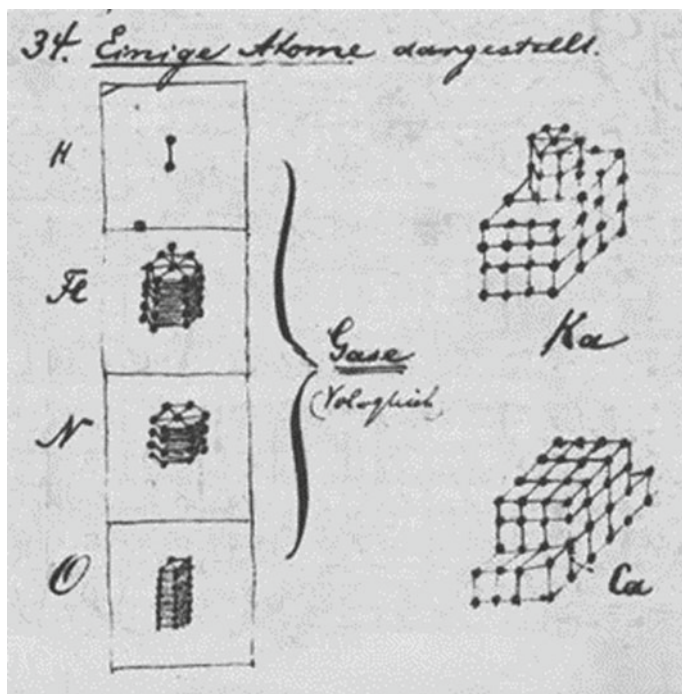 34. Einige Atome dargestellt.
H
Fl
N
O
Gase
Ka
Ca